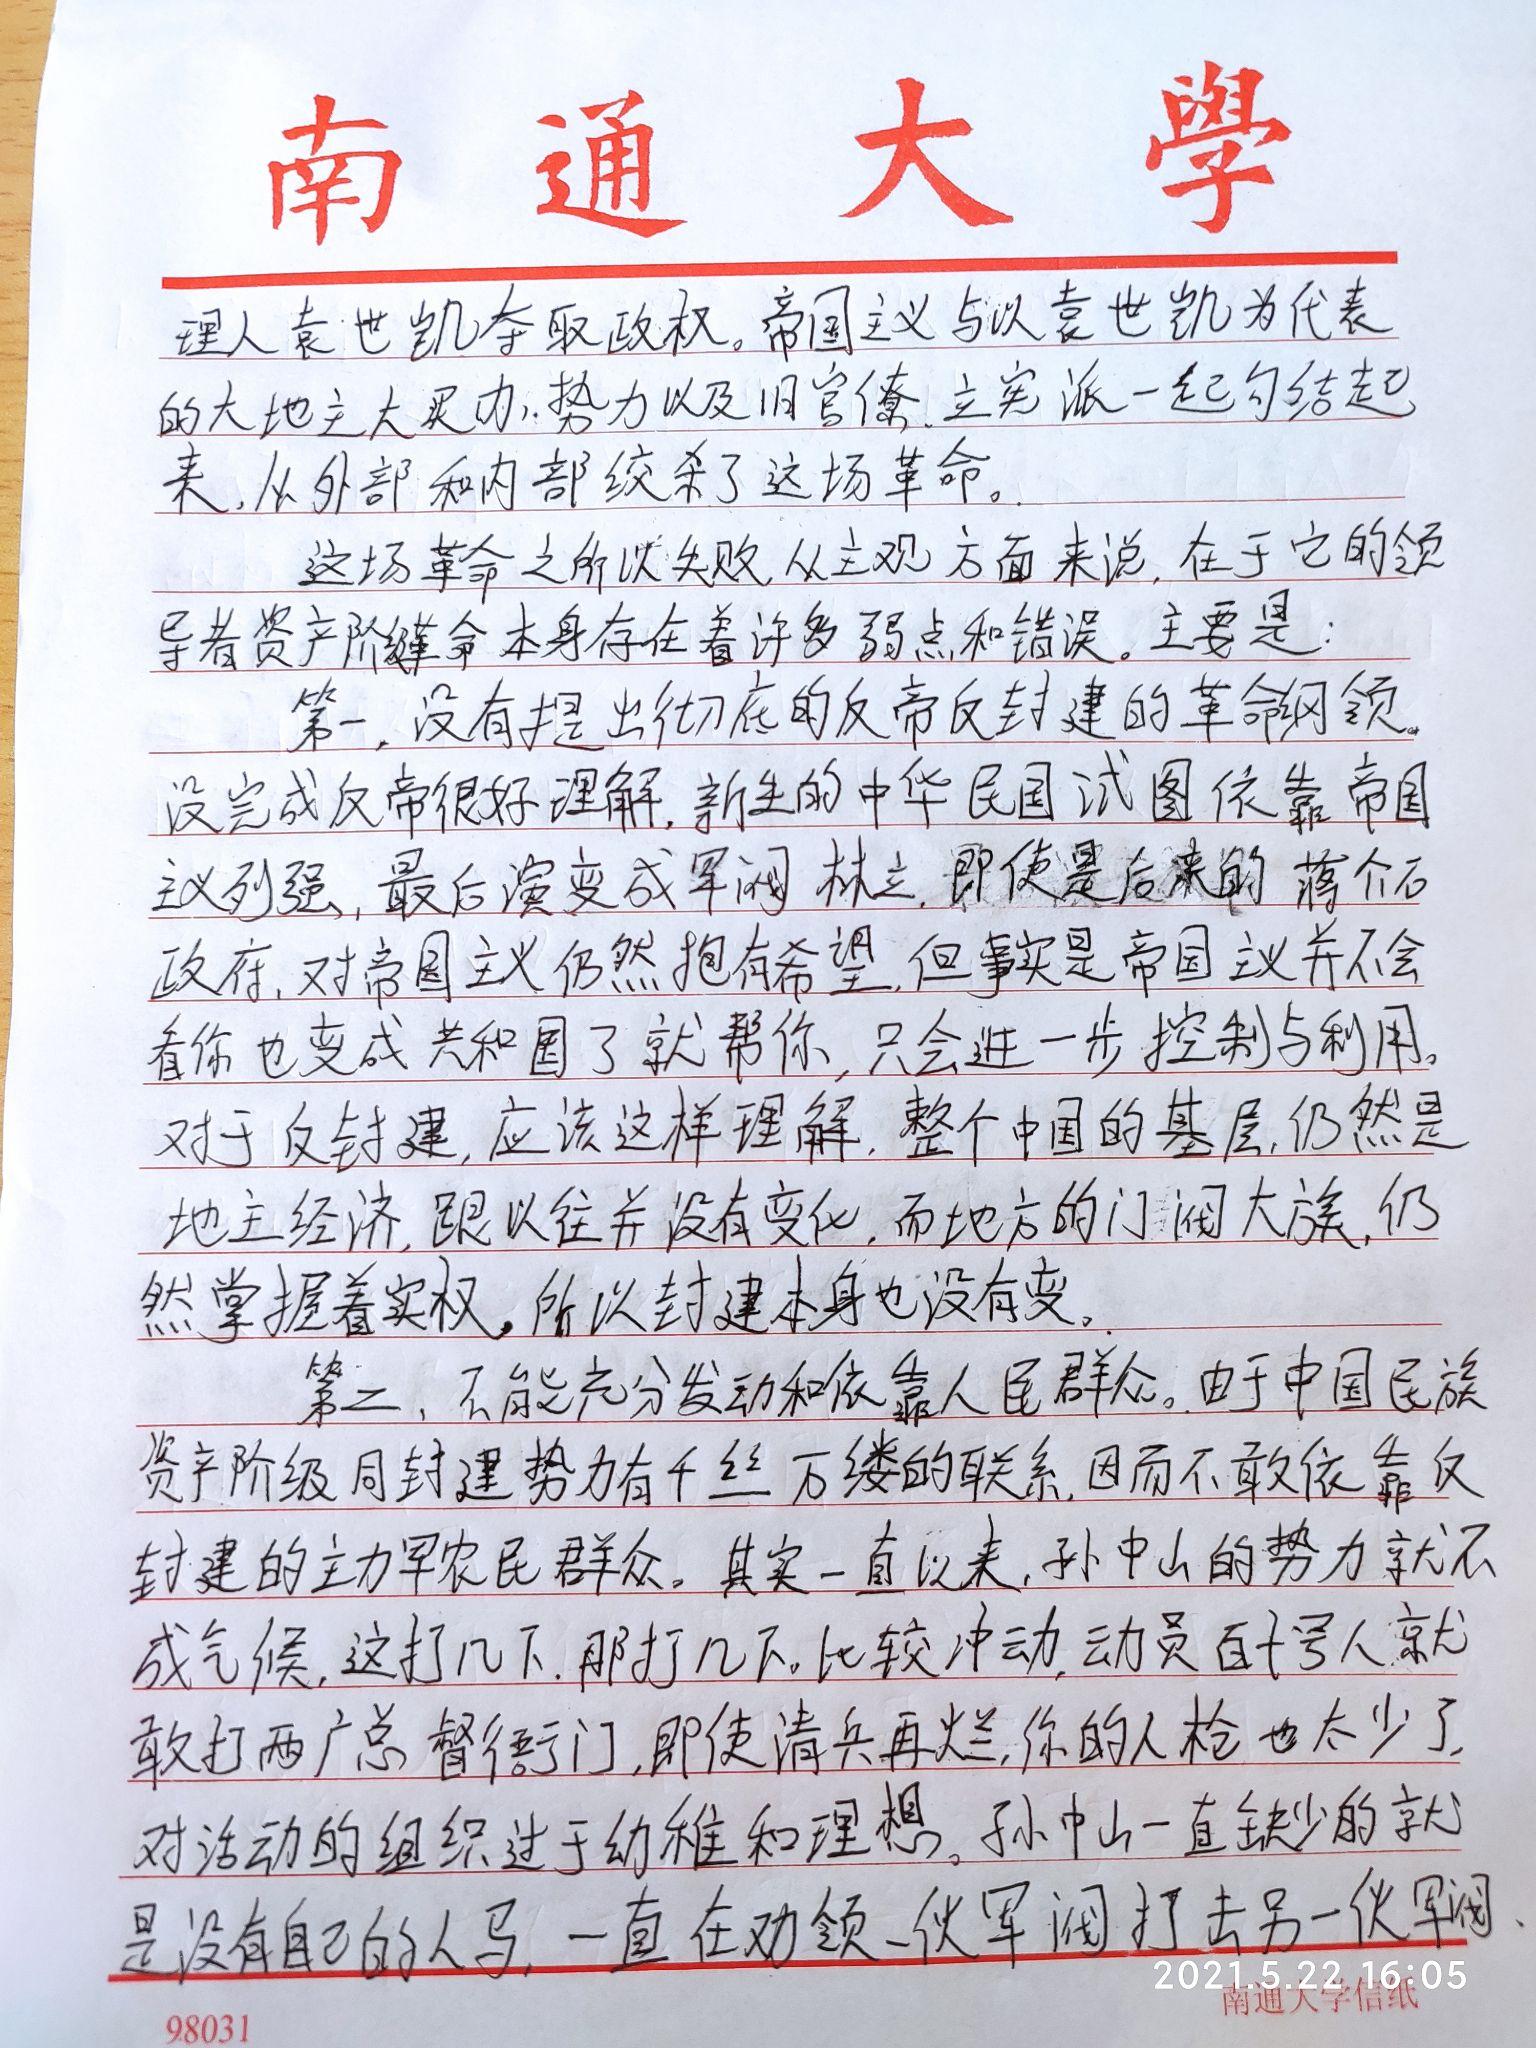 南通大學
理人袁世凯夺取政权。帝国主义与以袁世凯为代表
的大地主大买办势力以及旧官僚、立宪派一起勾结起
来,从外部和内部绞杀了这场革命。
这场革命之所以失败,从主观方面来说,在于它的领
导者资产阶级革命本身存在着许多弱点和错误。主要是:
第一,没有提出彻底的反帝反封建的革命纲领。
没完成反帝很好理解,新生的中华民国试图依靠帝国
主义列强,最后演变成军阀林立,即使是后来的蒋介石
政府,对帝国主义仍然抱有希望,但事实是帝国主义并不会
看你也变成共和国了就帮你,只会进一步控制与利用。
对于反封建,应该这样理解,整个中国的基层,仍然是
地主经济,跟以往并没有变化,而地方的门阀大族,仍
然掌握着实权。所以封建本身也没有变。
第二、不能充分发动和依靠人民群众。由于中国民族
资产阶级同封建势力有千丝万缕的联系,因而不敢依靠反
封建的主力军农民群众。其实一直以来,孙中山的势力就不
成气候,这打几下,那打几下。比较冲动,动员百十号人就
敢打两广总督衙门,即使清兵再烂,你的人枪也太少了,
对活动的组织过于幼稚和理想。孙中山一直缺少的就
是没有自己的人马,一直在劝领一伙军阀打击另一伙军阀、
2021.5.22 16:05
南通大学信纸
98031